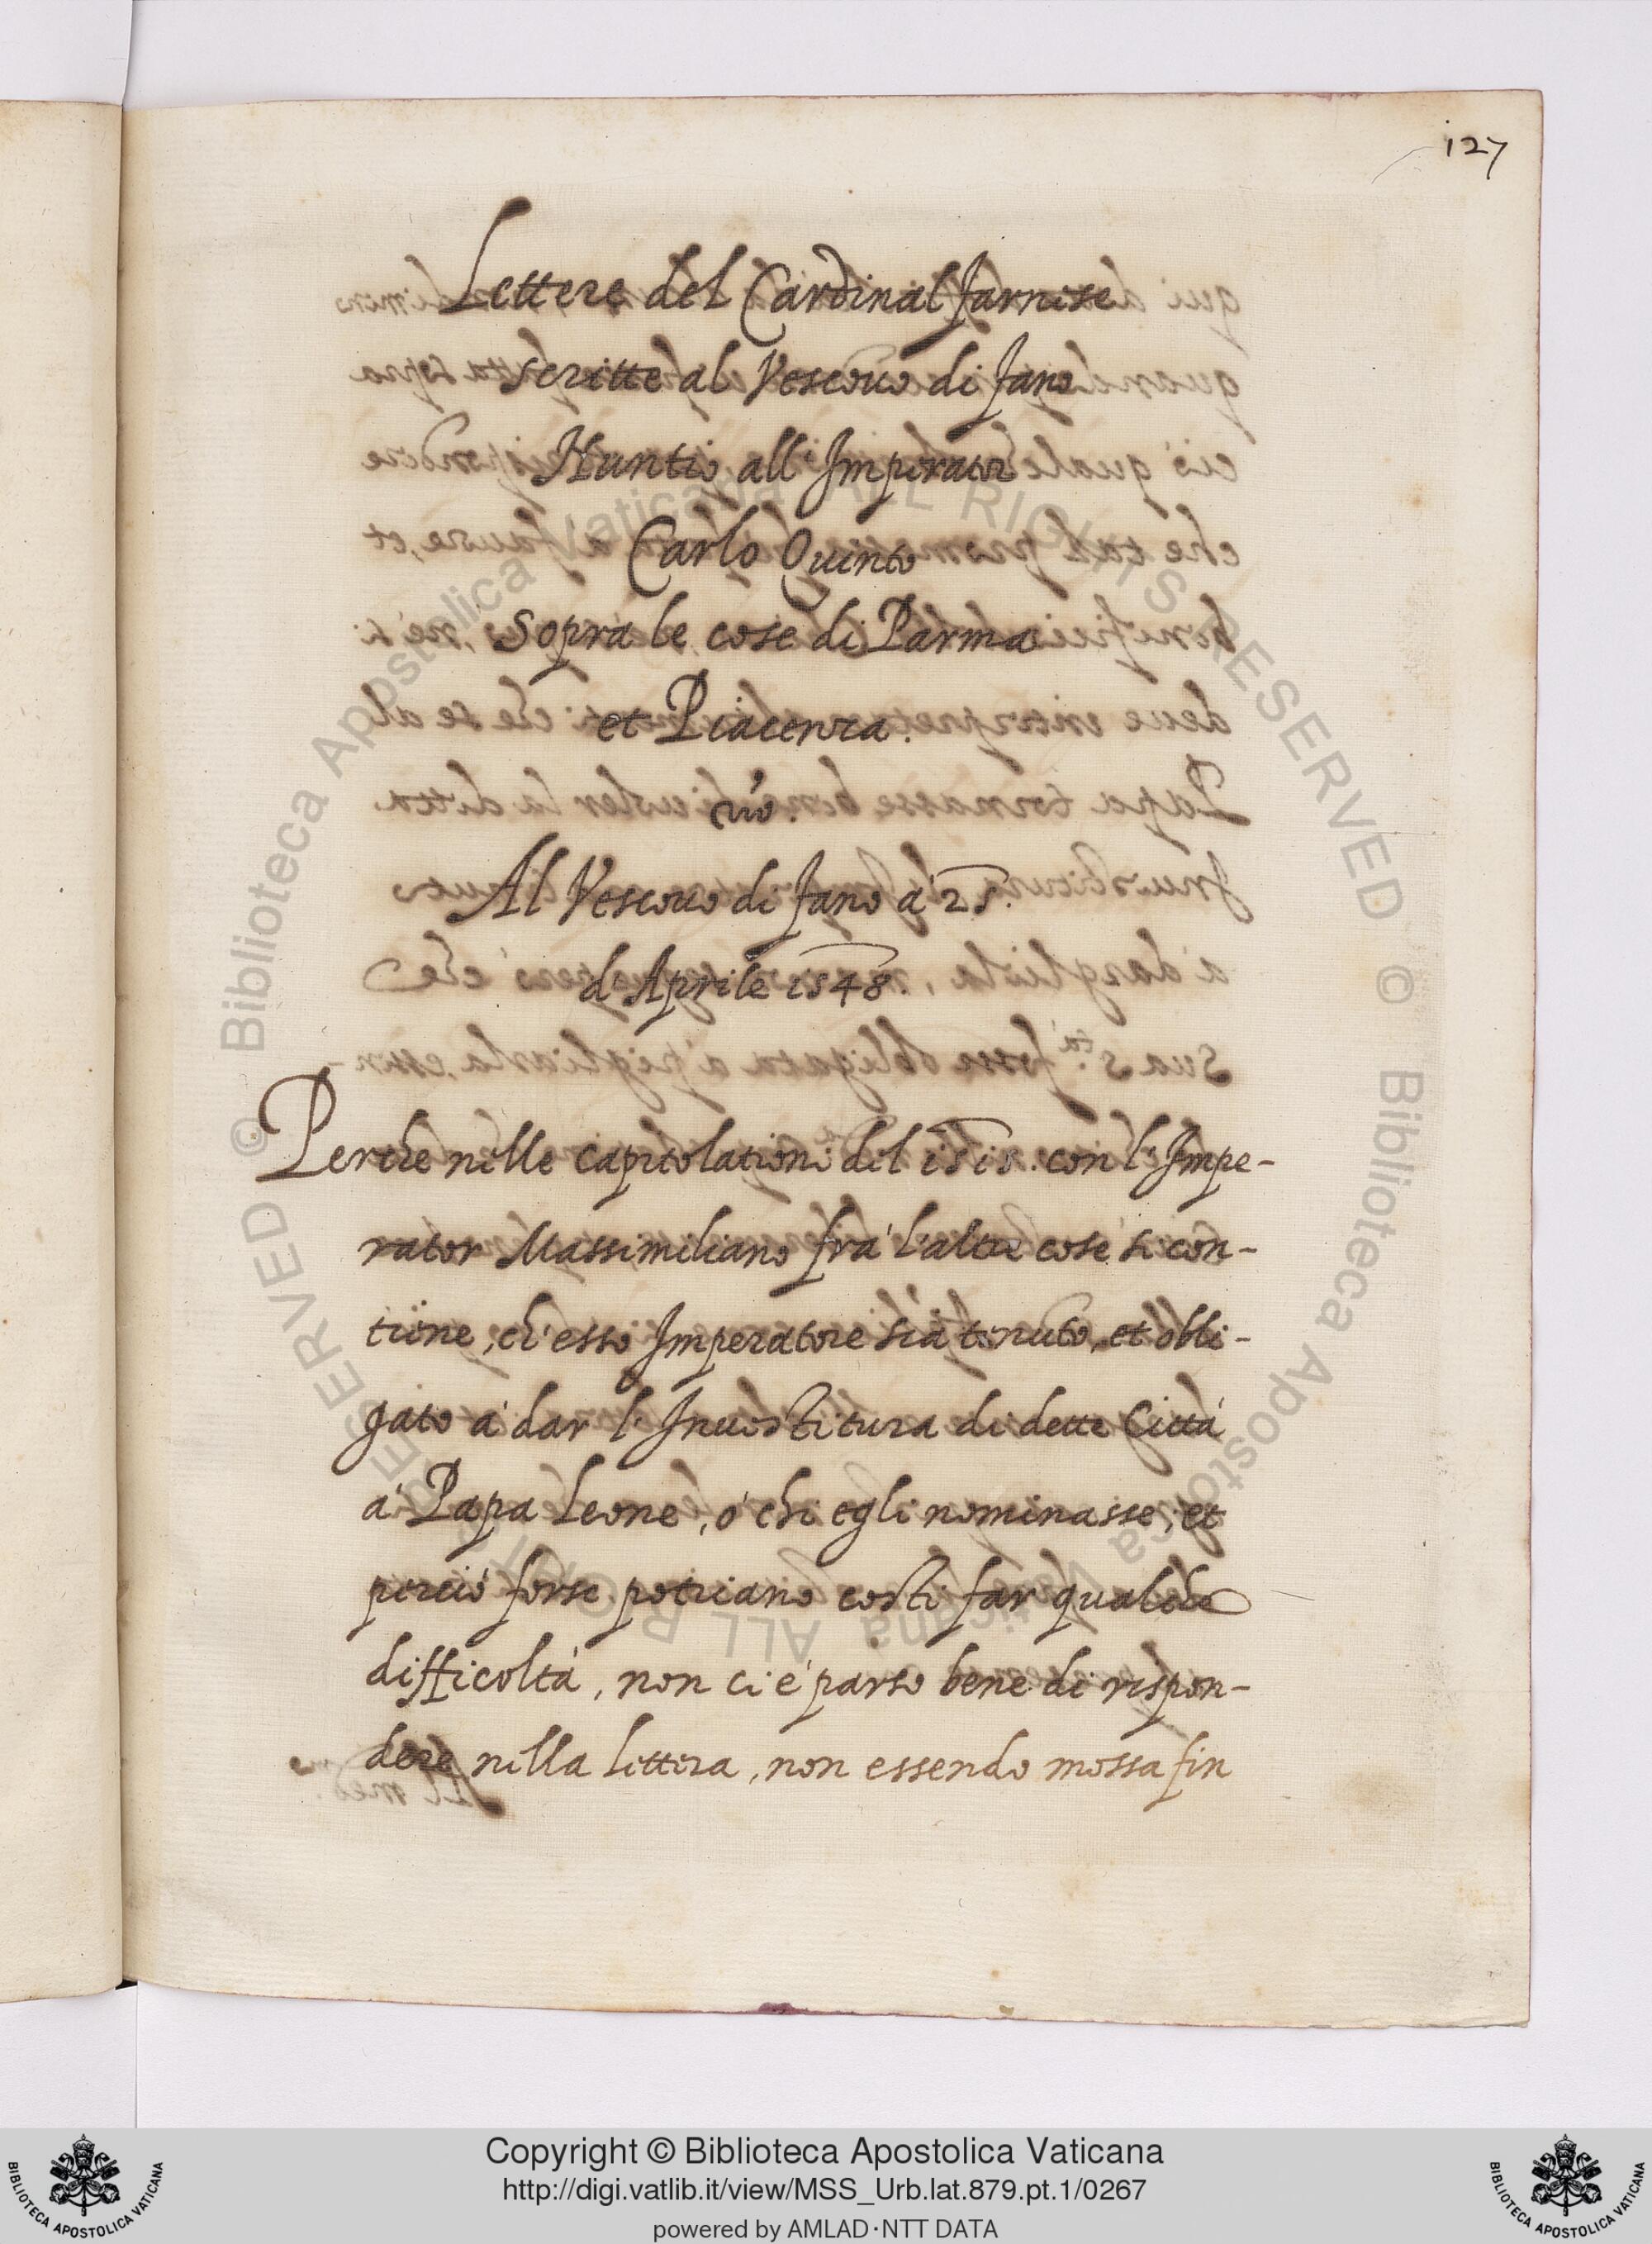 127
Lettere del Cardinal Farnese
scritte al Vescouo di Fano
Nuntio all'Imperator
Carlo Quinto
sopra le cose di Parma
et Piacenza.
Al Vescouo di Fano à 25.
d'Aprile 1548.
Perche nelle capitolationi del 1515. con l'Impe-
rator Massimiliano frà l'altre cose si con-
tiene, ch'esso Imperatore sia tenuto, et obli-
gato à dar l'Inuestitura di dette Città
à Papa Leone, ò chi egli nominasse, et
perciò forse potriano costì far qualche
difficoltà, non ci è parso bene di rispon-
dere nella lettera, non essendo mossa fin
© Biblioteca Apostolica Vaticana ALL RIGHTS RESERVED © Biblioteca Apostolica Vaticana ALL RIGHTS RESERVED
Copyright © Biblioteca Apostolica Vaticana
http://digi.vatlib.it/view/MSS_Urb.lat.879.pt.1/0267
powered by AMLAD·NTT DATA
BIBLIOTECA APOSTOLICA VATICANA
BIBLIOTECA APOSTOLICA VATICANA